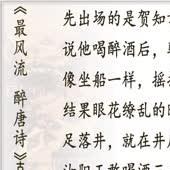 《最风流 醉唐诗》
先出场的是贺知
说他喝醉酒后，
像坐船一样，摇
结果眼花缭乱的
足落井，就在井